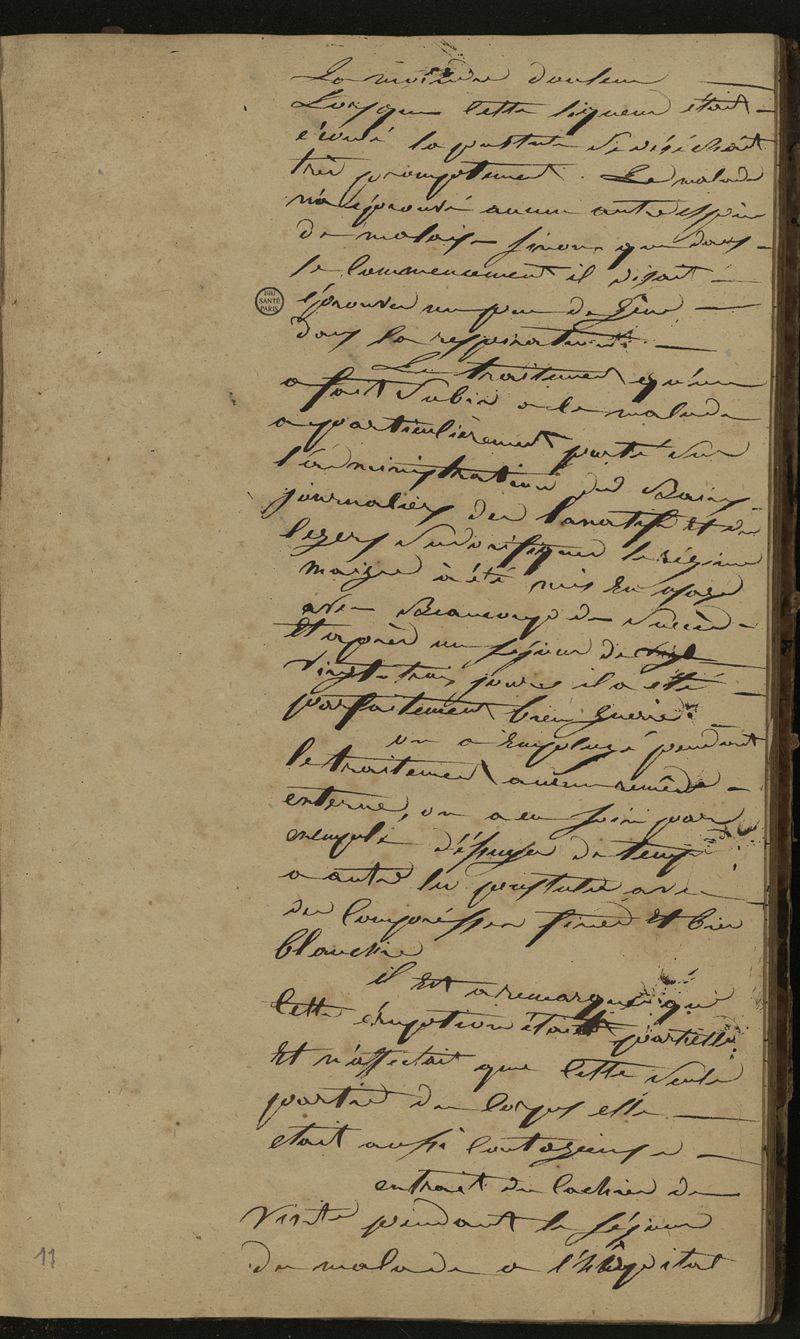 La moindre douleur —
Lorsque cette liqueur était —
écoulé la pustule se déséchait
très promptement. Le malade
n'a éprouvé aucun autre espèce
de malaise sinon que dans —
le commencement il disait —
éprouver un peu de gêne —
dans la respiration. —
Le traitement qu'on
a fait subir a ce malade
a particulièrement porté sur
l'administration des Bains
journaliers des laxatifs et de
legers sudorifiques le régime
maigre à été mis en usage
avec Beaucoup de succès —
Et après un séjour de vingt
vingt-trois jours il a été —
parfaitement bien guerie. —
on a employé pendant
le traitement aucun remède —
externe, on a eu soin par
exemple d'éssuyer de temps
a autre les pustules avec —
des compresses fines et bien
blanchie
il Est a remarquer que
cette éruption était partielle
Et n'affectait que cette seule
partie du corps elle —
etait aussi contagieuse —
extrait du cachier de
visite pendant le séjour
du malade a l'hôpital
BIU
SANTÉ
PARIS
11